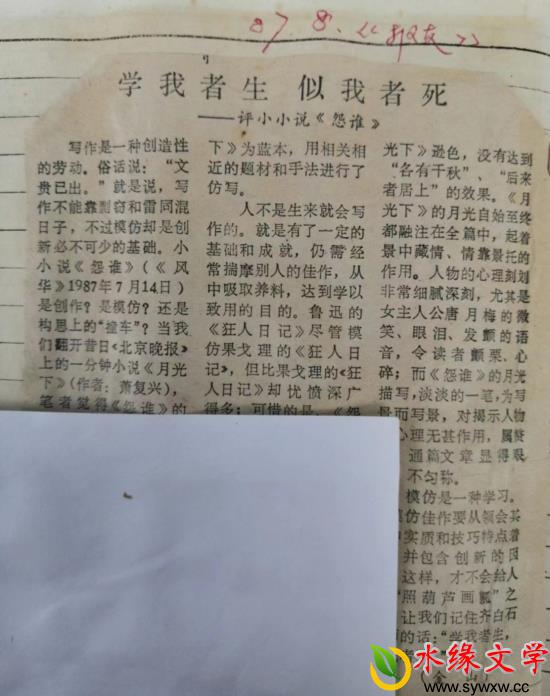 87.8.《报友》
学我者生 似我者死
——评小小说《怨谁》
写作是一种创造性
的劳动。俗话说："文
贵已出。"就是说，写
作不能靠剽窃和雷同混
日子，不过模仿却是创
新必不可少的基础。小
小说《怨谁》（《风
华》1987年7月14日）
是创作？是模仿？还是
构思上的"撞车"？当我
们翻开昔日《北京晚报》
上的一分钟小说《月光
下》（作者：萧复兴），
笔者觉得《怨谁》的
下》为蓝本，用相关相
近的题材和手法进行了
仿写。
人不是生来就会写
作的。就是有了一定的
基础和成就，仍需经
常揣摩别人的佳作，从
中吸取养料，达到学以
致用的目的。鲁迅的
《狂人日记》尽管模
仿果戈理的《狂人日
记》，但比果戈理的《狂
人日记》却忧愤深广
得多；可惜的是，《怨
光下》逊色，没有达到
"各有千秋"、"后来
者居上"的效果。《月
光下》的月光自始至终
都融注在全篇中，起着
景中藏情、情靠景托的
作用。人物的心理刻划
非常细腻深刻，尤其是
女主人公唐月梅的微
笑、眼泪、发颤的语
音，令读者颤栗、心
碎；而《怨谁》的月光
描写，淡淡的一笔，为写
景而写景，对揭示人物
心理无甚作用，属赘
通篇文章显得艰
不匀称。
模仿是一种学习。
模仿佳作要从领会其
中实质和技巧特点着
并包含创新的因
这样，才不会给人
"照葫芦画瓢"之
让我们记住齐白石
的话："学我者生，
水缘文学
www.sywxw.cc